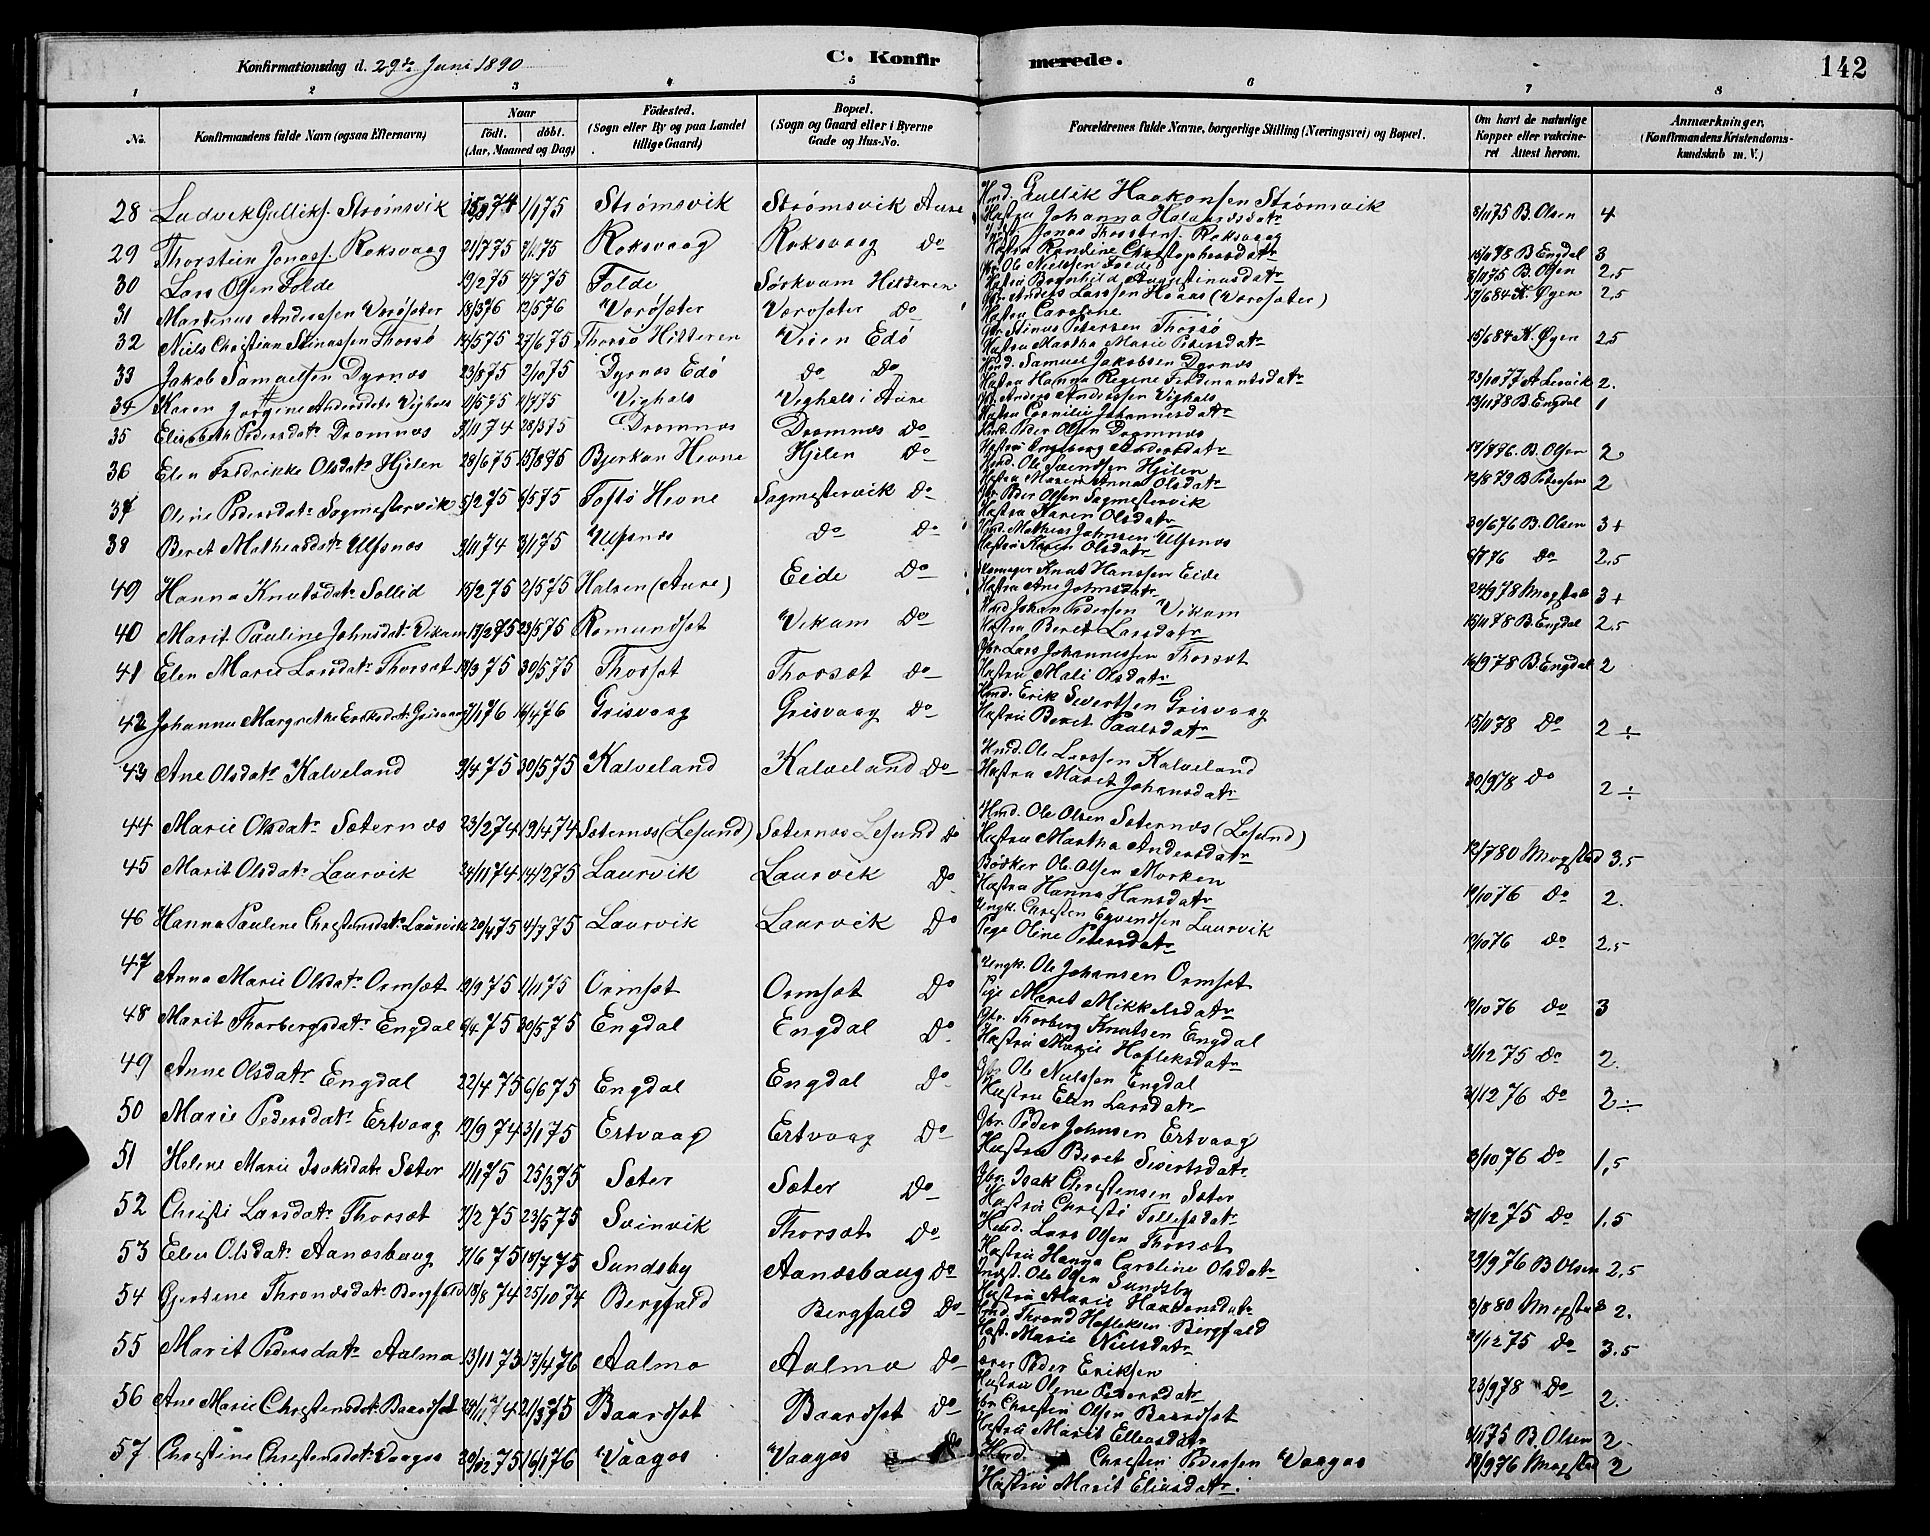 Konfirmationsdag d. 29de Juni 1890 C. Konfirmerede. 142
1 2 3 4 5 6 7 8
No. Konfirmandens fulde Navn (ogsaa Efternavn) Naar født. døbt. (Aar, Maaned og Dag) Födested. (Sogn eller By og paa Landet tillige Gaard) Bopæl. (Sogn og Gaard eller i Byerne Gade og Hus-No. Forældrenes fulde Navne, borgerlige Stilling (Næringsvei) og Bopæl. Om havt de naturlige Kopper eller vakcineret Attest herom. Anmærkninger, (Konfirmandens Kristendomskundskab m. V.)
28 Ludvik Gulliks. Strømsvik 1/1 75 Strømsvik Strømsvik Aure Hmd. Gullik Haakonsen Strømsvik
Hustru Johanna Halvardsdatr 8/11 75 B. Olsen 4
29 Thorstein Jonass. Roksvaag 21/7 75 Roksvaag Roksvaag Do Jonas Thorstens. Roksvaag
Hustru Randine Christophersdatr 15/10 78 B Engdal 3
30 Lars Olsen Folde 19/2 75 4/7 75 Folde Sørkvam Hitteren Gbr. Ole Nielssen Folde
Hustru Bergnhild Augustinusdatr 8/11 75 B. Olsen 2,5
31 Martinus Anderssen Værøsæter 18/3 76 12/5 76 Værøsæter Værøsæter Do Gbr. Anders Larssen Hoaas (Værøsæter)
Hustru Caroline 17/6 84 K. Øyen 2,5
32 Niels Christian Stinussen Thorsø 14/5 75 27/6 75 Thorsø Hitteren Veien Edø Gbr Stinus Petersen Thorsø
Hustru Martha Marie Pedersdatr 15/6 84 K. Øyen 2,5
33 Jakob Samuelsen Dyrnæs 23/8 75 2/10 75 Dyrnæs Edø Do Do Hmd. Samuel Jakobsen Dyrnæs
Hustru Hanna Regine Ferdinantsdatr 23/10 77 A Lervik 2.
34 Karen Jørgine Andersdatr Vighals 11/5 75 11/7 75 Vighals Vighals i Aure Gbr. Anders Anderssen Vighals
Hustru Cornilie Johannesdatr 13/11 78 B. Engdal 1
35 Elisabeth Pedersdatr Dromnæs 3/11 74 28/3 75 Dromnæs Dromnæs Do Hmd. Peder Olsen Dromnæs
Hustru Ingeborg Andersdatr 17/8 76. B. Olsen 2
36 Elen Fredrikke Olsdatr Hjelen 28/6 75 15/8 75 Bjerkan Hevne Hjelen Do Hmd. Ole Svendsen Hjelen
Hustru Maren Anna Olsdatr 12/8 79 B Petersen 2
37 Oline Pedersdatr Sagmestervik 5/2 75 6/5 75 Toftø Hevne Sagmestervik Do Gbr Peder Olsen Sagmestervik
Hustru Karen Olsdatr 30/6 76 B. Olsen 3+
38 Beret Matheasdatr Ulfsnæs 9/11 74 3/1 75 Ulfsnæs Do Do Hmd. Matheas Johnsen Ulfsnæs
Hustru Karen Olsdatr 6/7 76 Do 2,5
49 Hanna Knutsdatr Sollid 15/2 75 2/5 75 Halsen (Aure) Eide Do Knut Hanssen Eide
Hustru Ane Johnsdatr 24/9 78 Mogstad 3+
40 Marit Pauline Johnsdatr Vikam 17/2 75 23/5 75 Romundset Vikam Do Hmd Johan Pedersen Vikam
Hustru Beret Larsdatr 15/11 78 B. Engdal 2,5
41 Elen Marie Larsdatr Thorsæt 13/3 75 30/5 75 Thorsæt Thorsæt Do Gbr. Lars Johannessen Thorsæt
Hustru Mali Olsdatr 16/9 78 B. Engdal 2
42 Johanna Margrethe Eriksdatr Grisvaag 7/1 76 16/4 76 Grisvaag Grisvaag Do Hmd. Erik Sivertsen Grisvaag
Hustru Beret Paulsdatr 15/11 78 Do 2 ÷
43 Ane Olsdatr Kalveland 9/4 75 30/5 75 Kalveland Kalveland Do Hmd. Ole Larssen Kalveland
Hustru Marit Johansdatr 30/9 78 Do 2 ÷
44 Marie Olsdatr Sæternæs 23/2 74 19/4 74 Sæternæs (Lesund) Sæternæs Lesund Do Hmd. Ole Olsen Sæternæs (Lesund)
Hustru Martha Andersdatr 12/7 80 Mogstad 3.5
45 Marit Olsdatr Laurvik 24/11 74 14/2 75 Laurvik Laurvik Do Bødker Ole Olsen Morken
Hustru Hanna Hansdatr 19/10 76 Do 2.
46 Hanna Pauline Christensdatr Laurvik 20/4 75 4/7 75 Laurvik Laurvik Do Ungk. Christen Eyvindsen Laurvik
Pige Oline Petersdatr 19/10 76 Do 2,5
47 Anna Marie Olsdatr Ormsæt 19/9 75 1/11 75 Ormsæt Ormsæt Do Ungk. Ole Johansen Ormsæt
Pige Marit Mikkelsdatr 19/10 76 Do 3
48 Marit Thorbergsdatr Engdal 6/4 75 30/5 75 Engdal Engdal Do Gbr. Thorberg Knutsen Engdal
Hustru Marie Hofleksdatr 31/12 75 Do 2.
49 Anne Olsdatr Engdal 22/4 75 6/6 75 Engdal Engdal Do Gbr Ole Nielssen Engdal
Hustru Elen Larsdatr 31/12 76 Do 2 ÷
50 Marie Pedersdatr Ertvaag 19/9 74 3/1 75 Ertvaag Ertvaag Do Gbr. Peder Johnsen Ertvaag
Hustru Beret Sivertsdatr 3/10 76 Do 1,5
51 Helene Marie Isaksdatr Sæter 11/1 75 25/3 75 Sæter Sæter Do Gbr. Isak Christensen Sæter
Hustru Christi Tollefsdatr 31/12 75 Do 1,5
52 Christi Larsdatr Thorsæt 7/2 75 23/5 75 Svinvik Thorsæt Do Hmd. Lars Olsen Thorsæt
Hustru Hanna Caroline Olsdatr 29/9 76 B Olsen 2,5
53 Elen Olsdatr Aanæsbaug 7/6 75 18/7 75 Sundsby Aanæsbaug Do Indst. Ole Olsen Sundsby
Hustru Marie Haakonsdatr 3/8 80 Mogstad 2.
54 Gjertine Thronæsdatr Bergfald 18/8 74 25/10 74 Bergfald Bergfald Do Hmd. Thrond Hofleksen Bergfald
Hust. Marie Nielsdatr 31/12 75 Do 3.5
55 Marit Pedersdatr Aalmo 13/11 75 17/4 76 Aalmo Aalmo Do Peder Eriksen
Hustru Oline Petersdatr 23/9 78 Do 2.
56 Ane Marie Christensdatr Baardset 24/11 74 21/3 75 Baardsæt Baardsæt Do Gbr Christen Olsen Baardsæt
Hustru Marit Ellensdatr 4/11 75 B. Olsen 2.
57 Christine Christensdatr Vaagos 20/12 75 16/1 76 Vaagos Vaagos Do Hmd. Christen Pedersen Vaagos
Hustru Marit Eliasdatr. 18/9 76 Mogstad 2